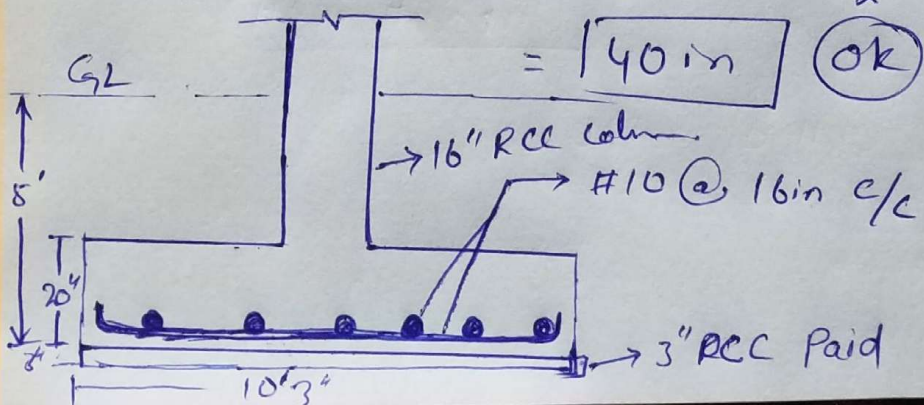 = 40 in OK
GL
16" RCC Column
#10 @ 16in c/c
5'
20"
3"
3" RCC Paid
10'3"